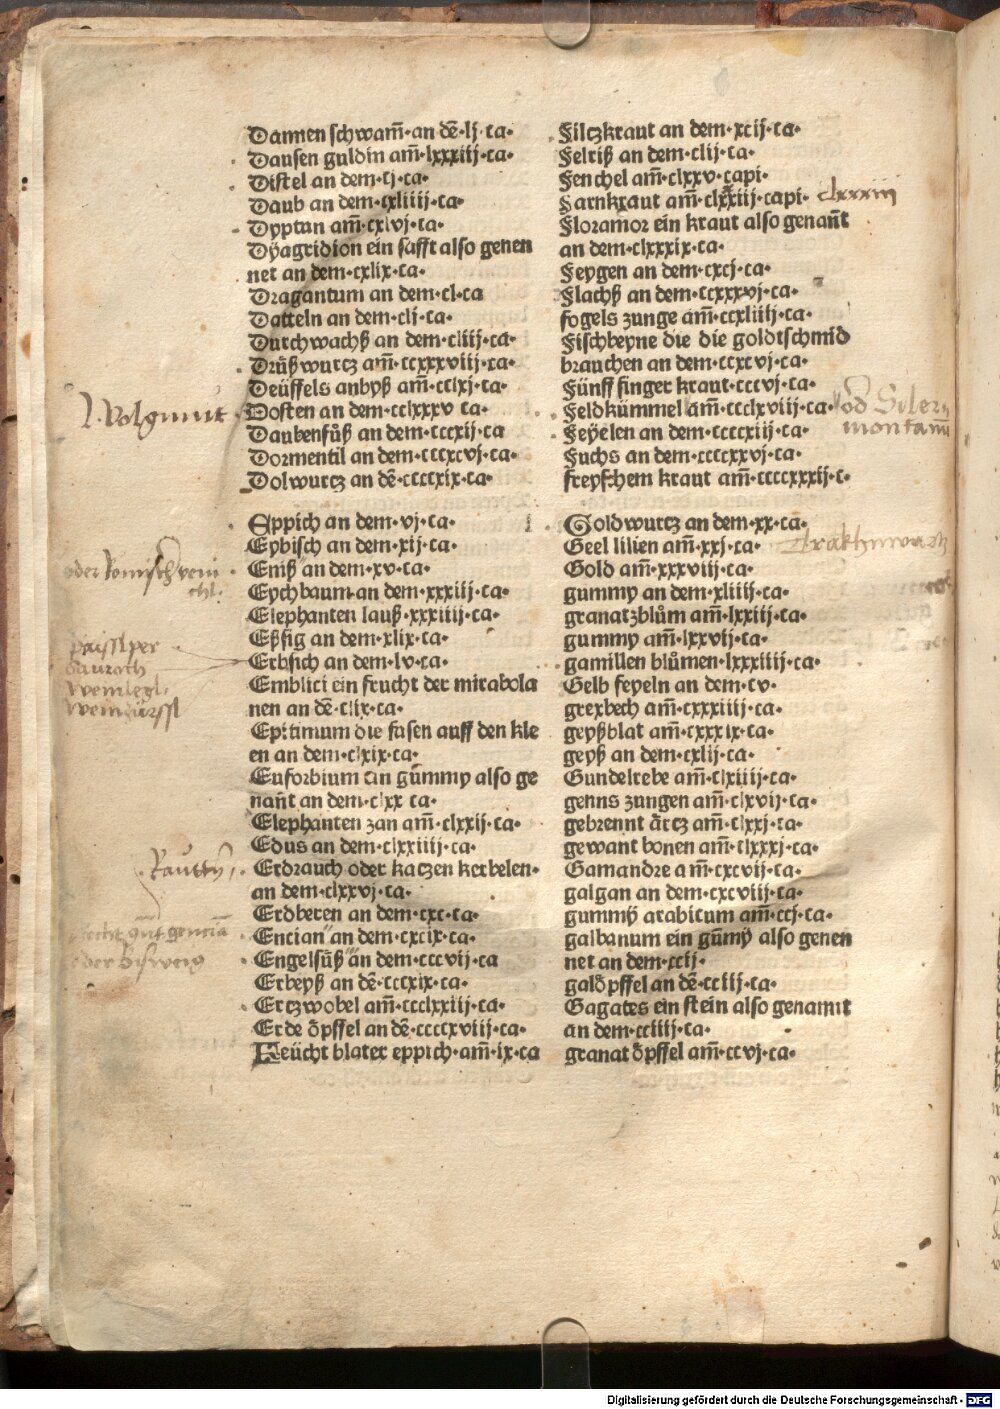 Dannen schwam̄·an dē·lj·ca·
Dausen guldin am̄·lxxxiij·ca·
Distel an dem·cj·ca·
Daub an dem·cxliiij·ca·
Dyptan am̄·cxlvj·ca·
Dyagridion ein safft also genen
net an dem·cxlix·ca·
Dragantum an dem·cl·ca
Datteln an dem·clj·ca·
Durchwachß an dem·cliij·ca·
Drůßwurcz am̄·ccxxxviij·ca·
Deüffels anbyß am̄·cclxj·ca·
Dosten an dem·cclxxxv ca·
Daubenfůß an dem·cccxij·ca
Dormentil an dem·cccxcvj·ca·
Dolwurcz an dē·ccccxix·ca·
Eppich an dem·vj·ca·
Eybisch an dem·xij·ca·
Eniß an dem·xv·ca·
Eychbaum·an dem·xxxiij·ca·
Elephanten lauß·xxxiiij·ca·
Eßsig an dem·xlix·ca·
Erbsich an dem·lv·ca·
Emblici ein frucht der mirabola
nen an dē·clix·ca·
Epitimum die fasen auff den kle
en an dem·clxix·ca·
Euforbium ein gummy also ge
nan̄t an dem·clxx ca·
Elephanten zan am̄·clxxij·ca·
Edus an dem·clxxiiij·ca·
Erdrauch oder kaczen kerbelen·
an dem·clxxvj·ca·
Erdberen an dem·cxc·ca·
Encian an dem·cxcix·ca·
Engelsüß an dem·cccvij·ca
Erbeyß an dē·cccxix·ca·
Erczwobel am̄·ccclxxiij·ca·
Erde öpffel an dē·ccccxviij·ca·
Feücht blater eppich·am̄·ix·ca
Filczkraut an dem·xcij·ca·
Felriß an dem·clij·ca·
Fenchel am̄·clxxv·capi·
Farnkraut am̄·clxxiij·capi· clxxxiii
Floramor ein kraut also genan̄t
an dem·clxxxix·ca·
Feygen an dem·cxcj·ca·
Flachß an dem·ccxxxvj·ca·
fogels zunge am̄·ccxliiij·ca·
Fischbeyne die die goldtschmid
brauchen an dem·ccxcvj·ca·
Fünff finger kraut·cccvj·ca·
Feldkümmel am̄·ccclxviij·ca·
Feyelen an dem·ccccxiij·ca·
Fuchs an dem·ccccxxvj·ca·
freyschem kraut am̄·ccccxxxij·c·
Goldwurcz an dem·xx·ca·
Geel lilien am̄·xxj·ca·
Gold am̄·xxxviij·ca·
gummy an dem·xliiij·ca·
granatzblům am̄·lxxiij·ca·
gummy am̄·lxxvij·ca·
gamillen blůmen·lxxxiiij·ca·
Gelb feyeln an dem·cv·
grexbech am̄·cxxxiiij·ca·
geyßblat am̄·cxxxix·ca·
geyß an dem·cxlij·ca·
Gundelrebe am̄·clxiiij·ca·
genns zungen am̄·clxvij·ca·
gebrennt ärcz am̄·clxxj·ca·
gewant bonen am̄·clxxxj·ca·
Gamandre am̄·cxcvij·ca·
galgan an dem·cxcviij·ca·
gummÿ arabicum am̄·ccj·ca·
galbanum ein gūmÿ also genen
net an dem·ccij·
galöpffel an dē·cciij·ca·
Gagates ein stein also genannt
an dem·cciiij·ca·
granat öpffel am̄·ccvj·ca·
Wolgmut
oder Romisch
paisslper
Saurach
Weinlegl
od Siler
montanū
Digitalisierung gefördert durch die Deutsche Forschungsgemeinschaft · DFG